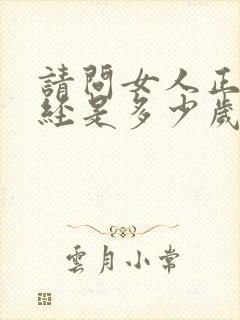 請問女人正
经是多少歲
雲月小常